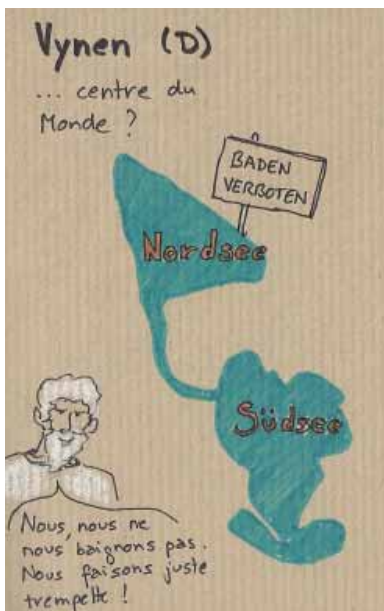 Vynen (D)
... centre du
Monde ?
BADEN
VERBOTEN
Nordsee
Südsee
Nous, nous ne
nous baignons pas.
Nous faisons juste
trempette !